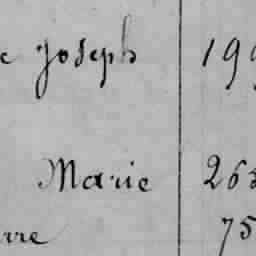 Joseph 199
Marie 263
rre 75